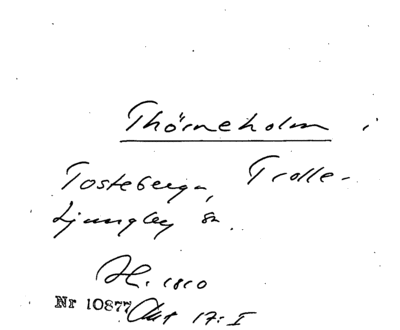 Thörneholm i
Tosteberga, Trolle-
Ljungby sn.
H. 1810
Nr 10877 Akt 17: I